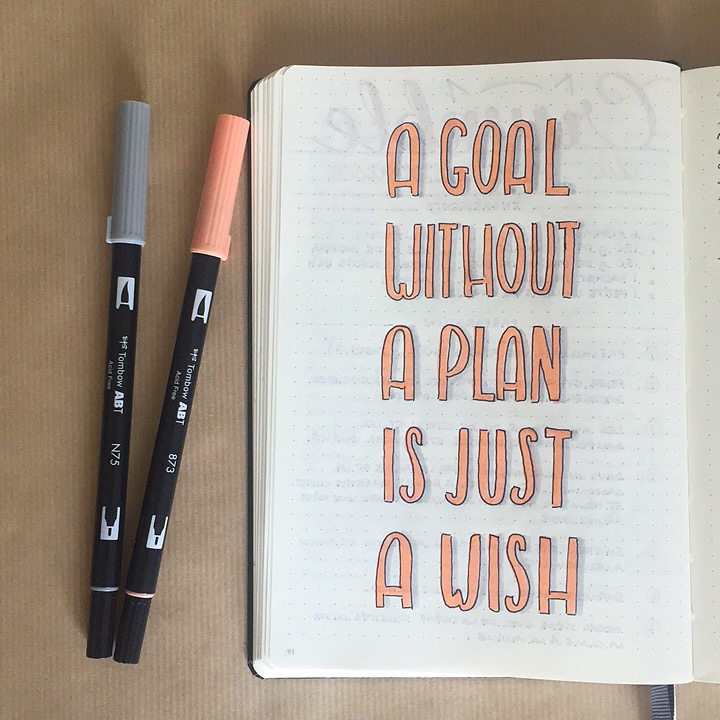 A GOAL
WITHOUT
A PLAN
IS JUST
A WISH
Tombow ABT
Acid Free
N75
Tombow ABT
Acid Free
873
91